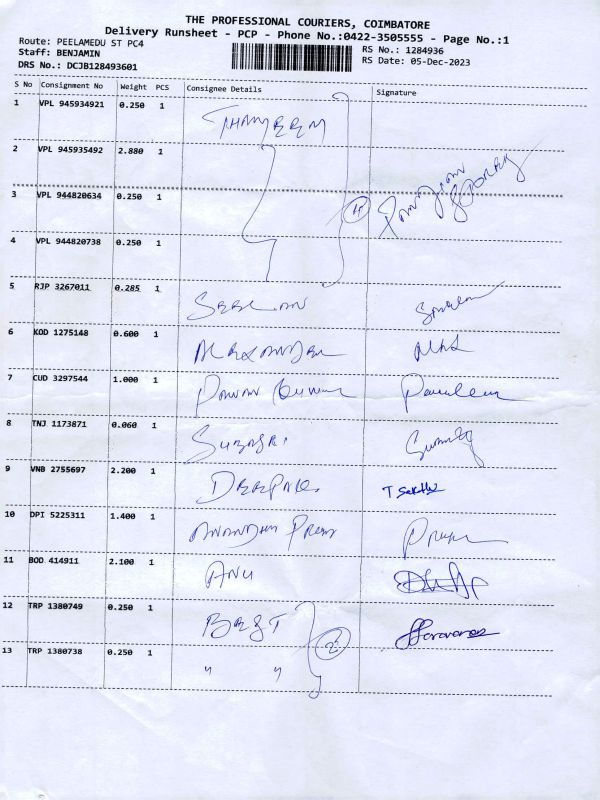 THE PROFESSIONAL COURIERS, COIMBATORE
Delivery Runsheet - PCP - Phone No.:0422-3505555 - Page No.:1
Route: PEELAMEDU ST PC4
RS No.: 1284936
Staff: BENJAMIN
RS Date: 05-Dec-2023
DRS No.: DCJB128493601
S No Consignment No Weight PCS Consignee Details Signature
1 VPL 945934921 0.250 1
2 VPL 945935492 2.880 1
3 VPL 944820634 0.250 1 4
4 VPL 944820738 0.250 1
5 RJP 3267011 0.285 1
6 KOD 1275148 0.600 1
7 CUD 3297544 1.000 1 Pawan Kumar
8 TNJ 1173871 0.060 1
9 VNB 2755697 2.200 1 DEEPAK T Sakthi
10 DPI 5225311 1.400 1
11 BOD 414911 2.100 1 ANU
12 TRP 1380749 0.250 1 BEST
13 TRP 1380738 0.250 1 " " 2